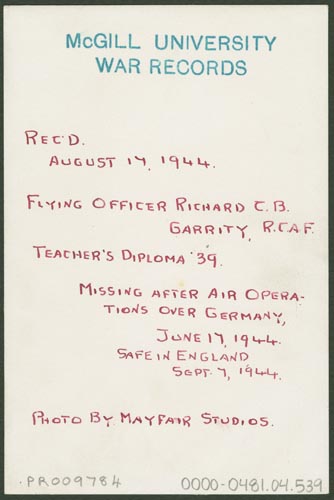 McGILL UNIVERSITY
WAR RECORDS
REC'D.
AUGUST 17, 1944.
FLYING OFFICER RICHARD C.B.
GARRITY, R.C.A.F.
TEACHER'S DIPLOMA '39.
MISSING AFTER AIR OPERA-
TIONS OVER GERMANY,
JUNE 17, 1944.
SAFE IN ENGLAND
SEPT. 7, 1944.
PHOTO BY MAYFAIR STUDIOS.
PR009784
0000-0481.04.539